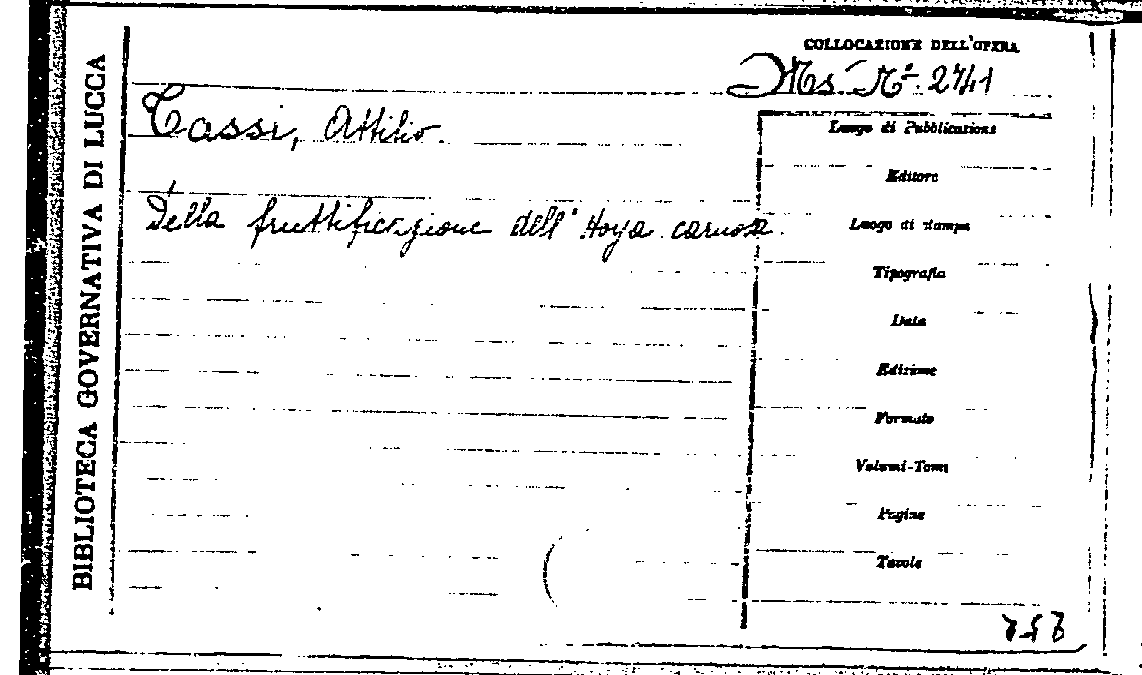 BIBLIOTECA GOVERNATIVA DI LUCCA
COLLOCAZIONE DELL'OPERA
Ms. N.º 2741
Tassi, Attilio.
Della fruttificazione dell'Hoya carnosa.
Luogo di Pubblicazione
Editore
Luogo di stampa
Tipografia
Data
Edizione
Formato
Volumi-Tomi
Pagine
Tavole